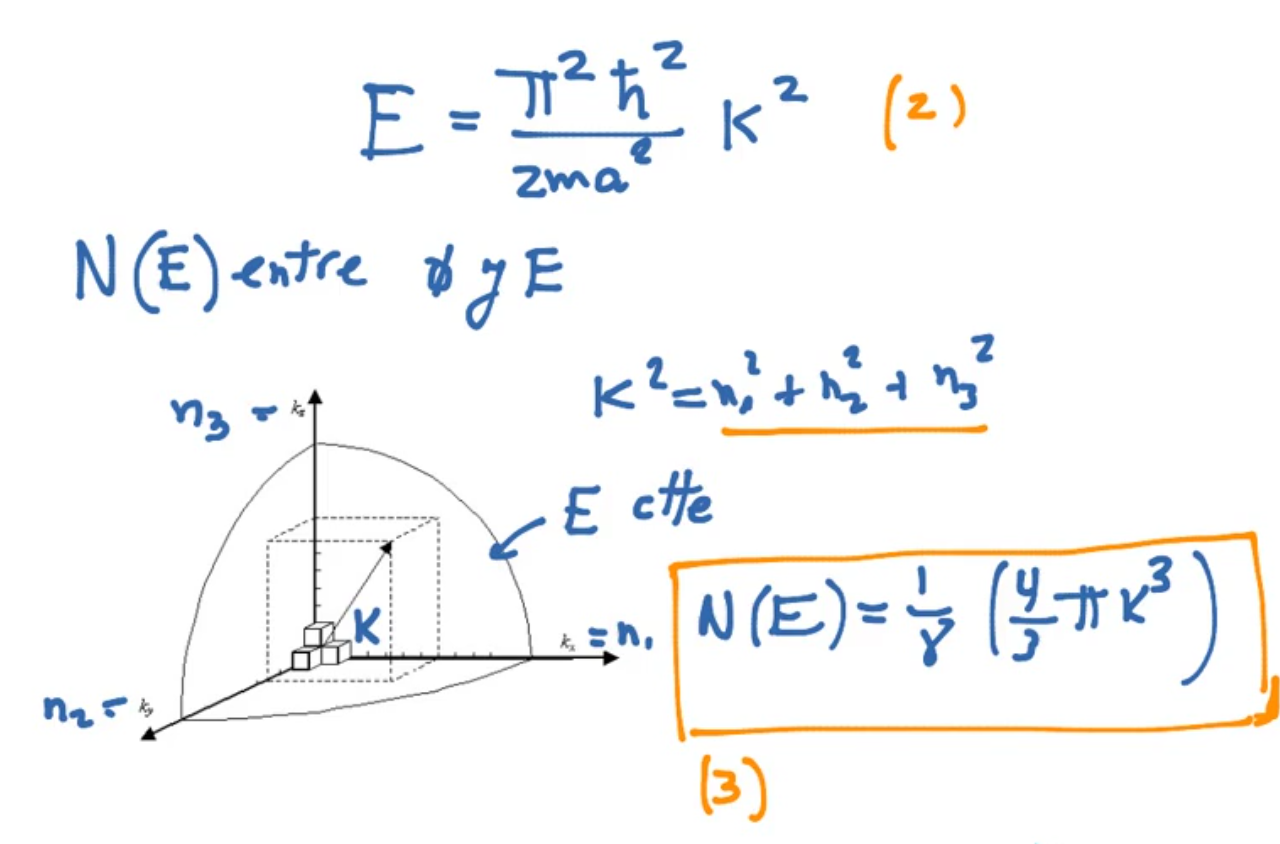 E = π² ħ² / 2ma² K² (2)
N(E) entre ø y E
K² = n₁² + n₂² + n₃²
n₃ = k_z
E ctte
K
k_x = n₁
N(E) = 1/8 (4/3 π K³)
n₂ = k_y
(3)